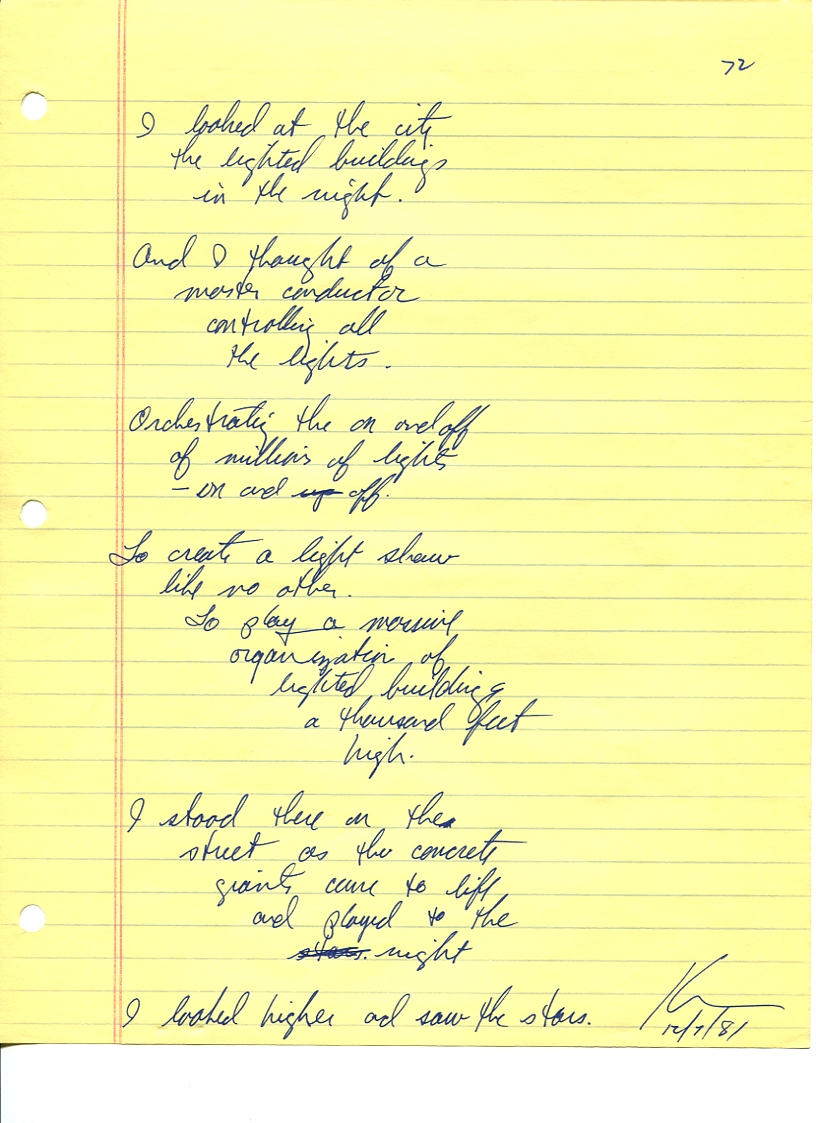 72
I looked at the city
the lighted buildings
in the night.
And I thought of a
master conductor
controlling all
the lights.
Orchestrating the on and off
of millions of lights
– on and up off.
To create a light show
like no other.
To play a massive
organization of
lighted buildings
a thousand feet
high.
I stood there on the
street as the concrete
giants came to life
and played to the
stars. night
I looked higher and saw the stars.
12/7/81